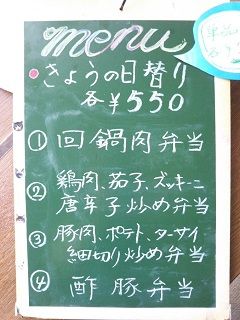 menu
きょうの日替り
各¥550
① 回鍋肉弁当
② 鶏肉、茄子、ズッキーニ
唐辛子炒め弁当
③ 豚肉、ポテト、ターサイ
細切り炒め弁当
④ 酢豚弁当